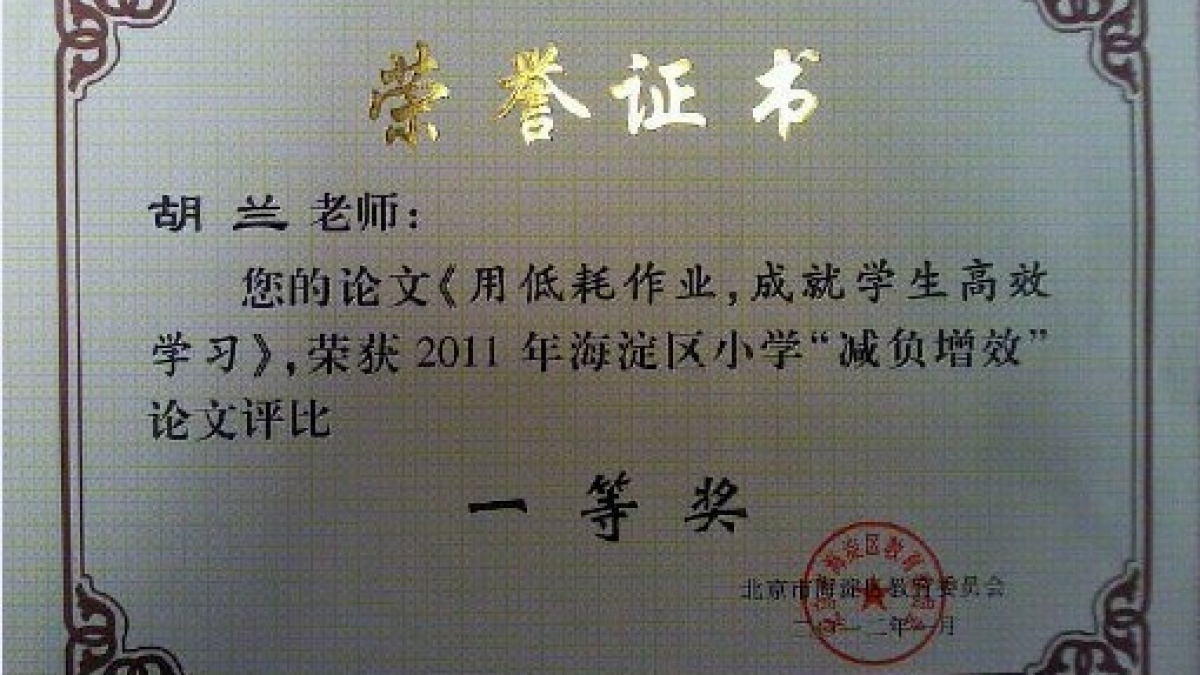 荣誉证书
胡兰老师：
您的论文《用低耗作业，成就学生高效
学习》，荣获 2011 年海淀区小学“减负增效”
论文评比
一等奖
北京市海淀区教育委员会
二〇一二年一月